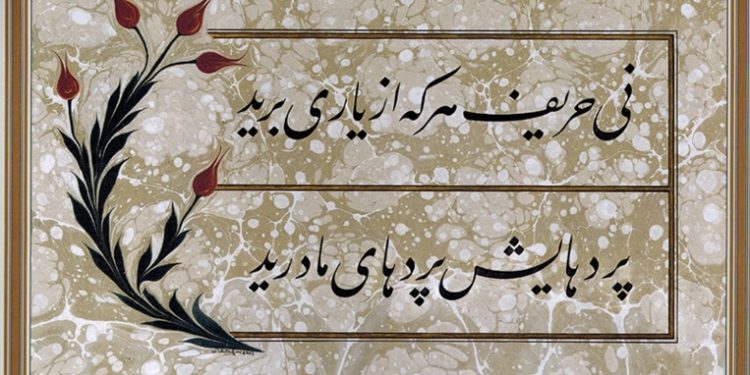 نی حریف هرکه از یاری برید
پردهایش پردهای ما درید